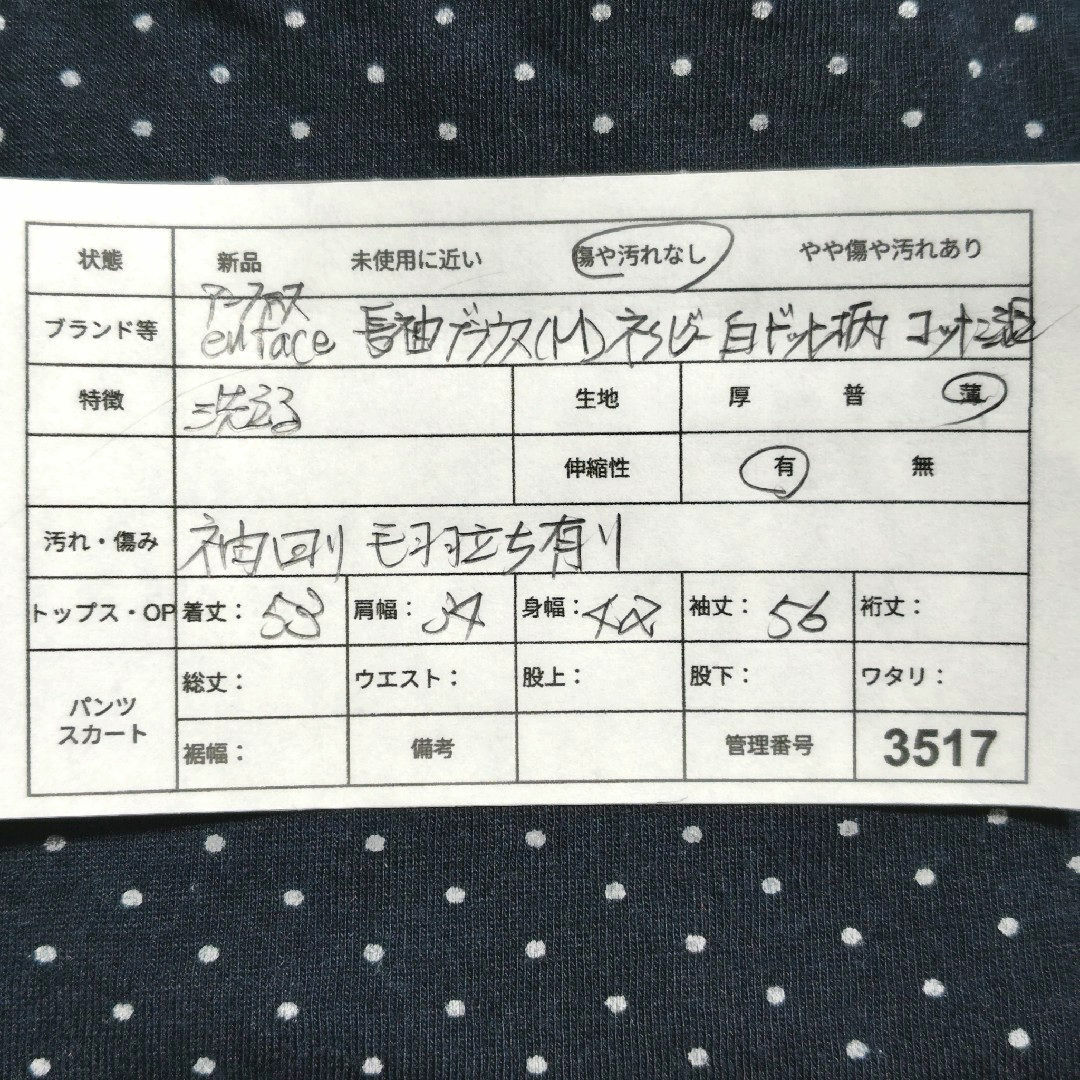 状態 新品 未使用に近い 傷や汚れなし やや傷や汚れあり
アンファス
ブランド等 enface 長袖ブラウス(M)ネイビー白ドット柄 コットン混
特徴 洗える 生地 厚 普 薄
伸縮性 有 無
汚れ・傷み 袖回り 毛羽立ち有り
トップス・OP 着丈: 53 肩幅: 34 身幅: 42 袖丈: 56 裄丈:
パンツ 総丈: ウエスト: 股上: 股下: ワタリ:
スカート
裾幅: 備考 管理番号 3517